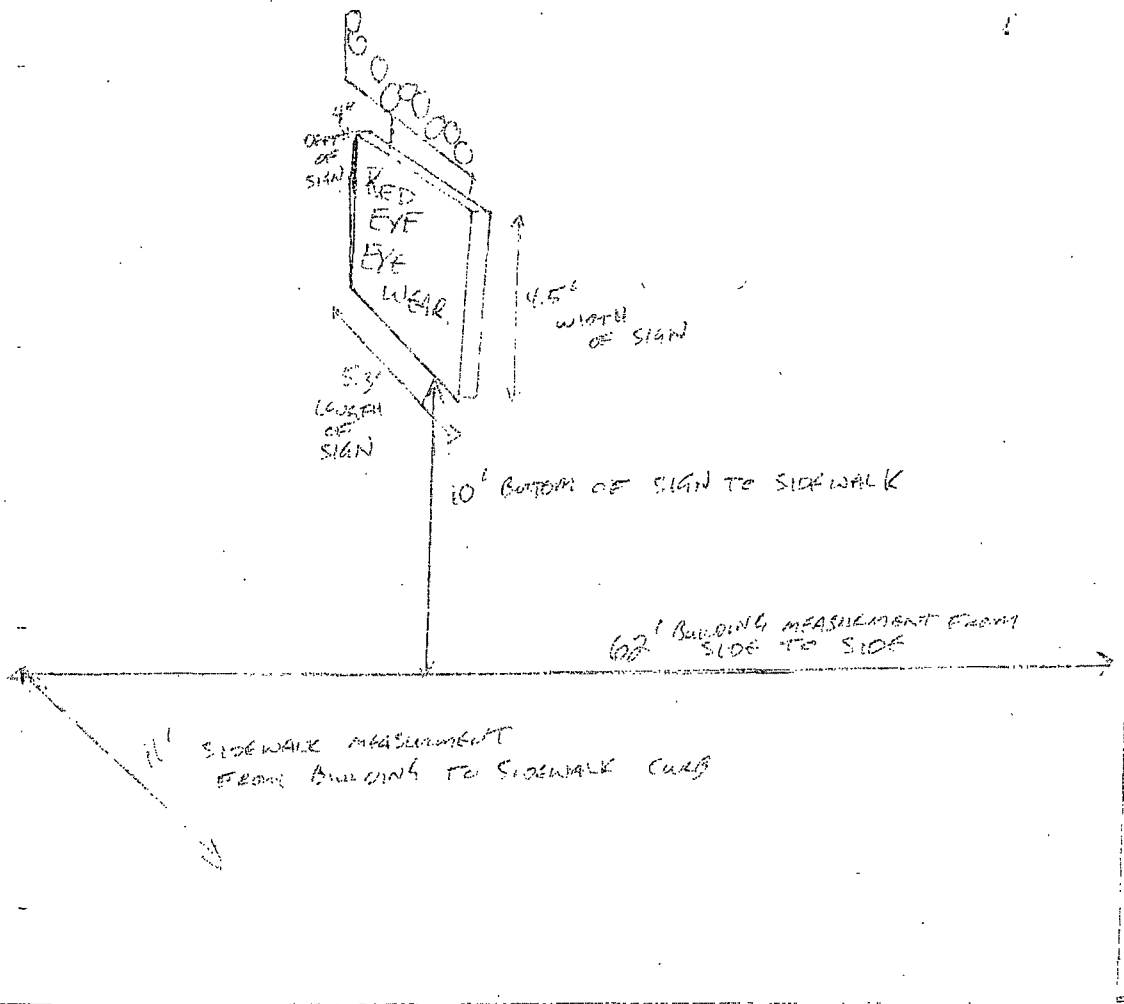 4"
DEPTH
OF
SIGN
RED
EYE
EYE
WEAR
4.5'
WIDTH
OF SIGN
5.3'
LENGTH
OF
SIGN
10' BOTTOM OF SIGN TO SIDEWALK
62' BUILDING MEASURMENT FROM
SIDE TO SIDE
11' SIDEWALK MEASURMENT
FROM BUILDING TO SIDEWALK CURB